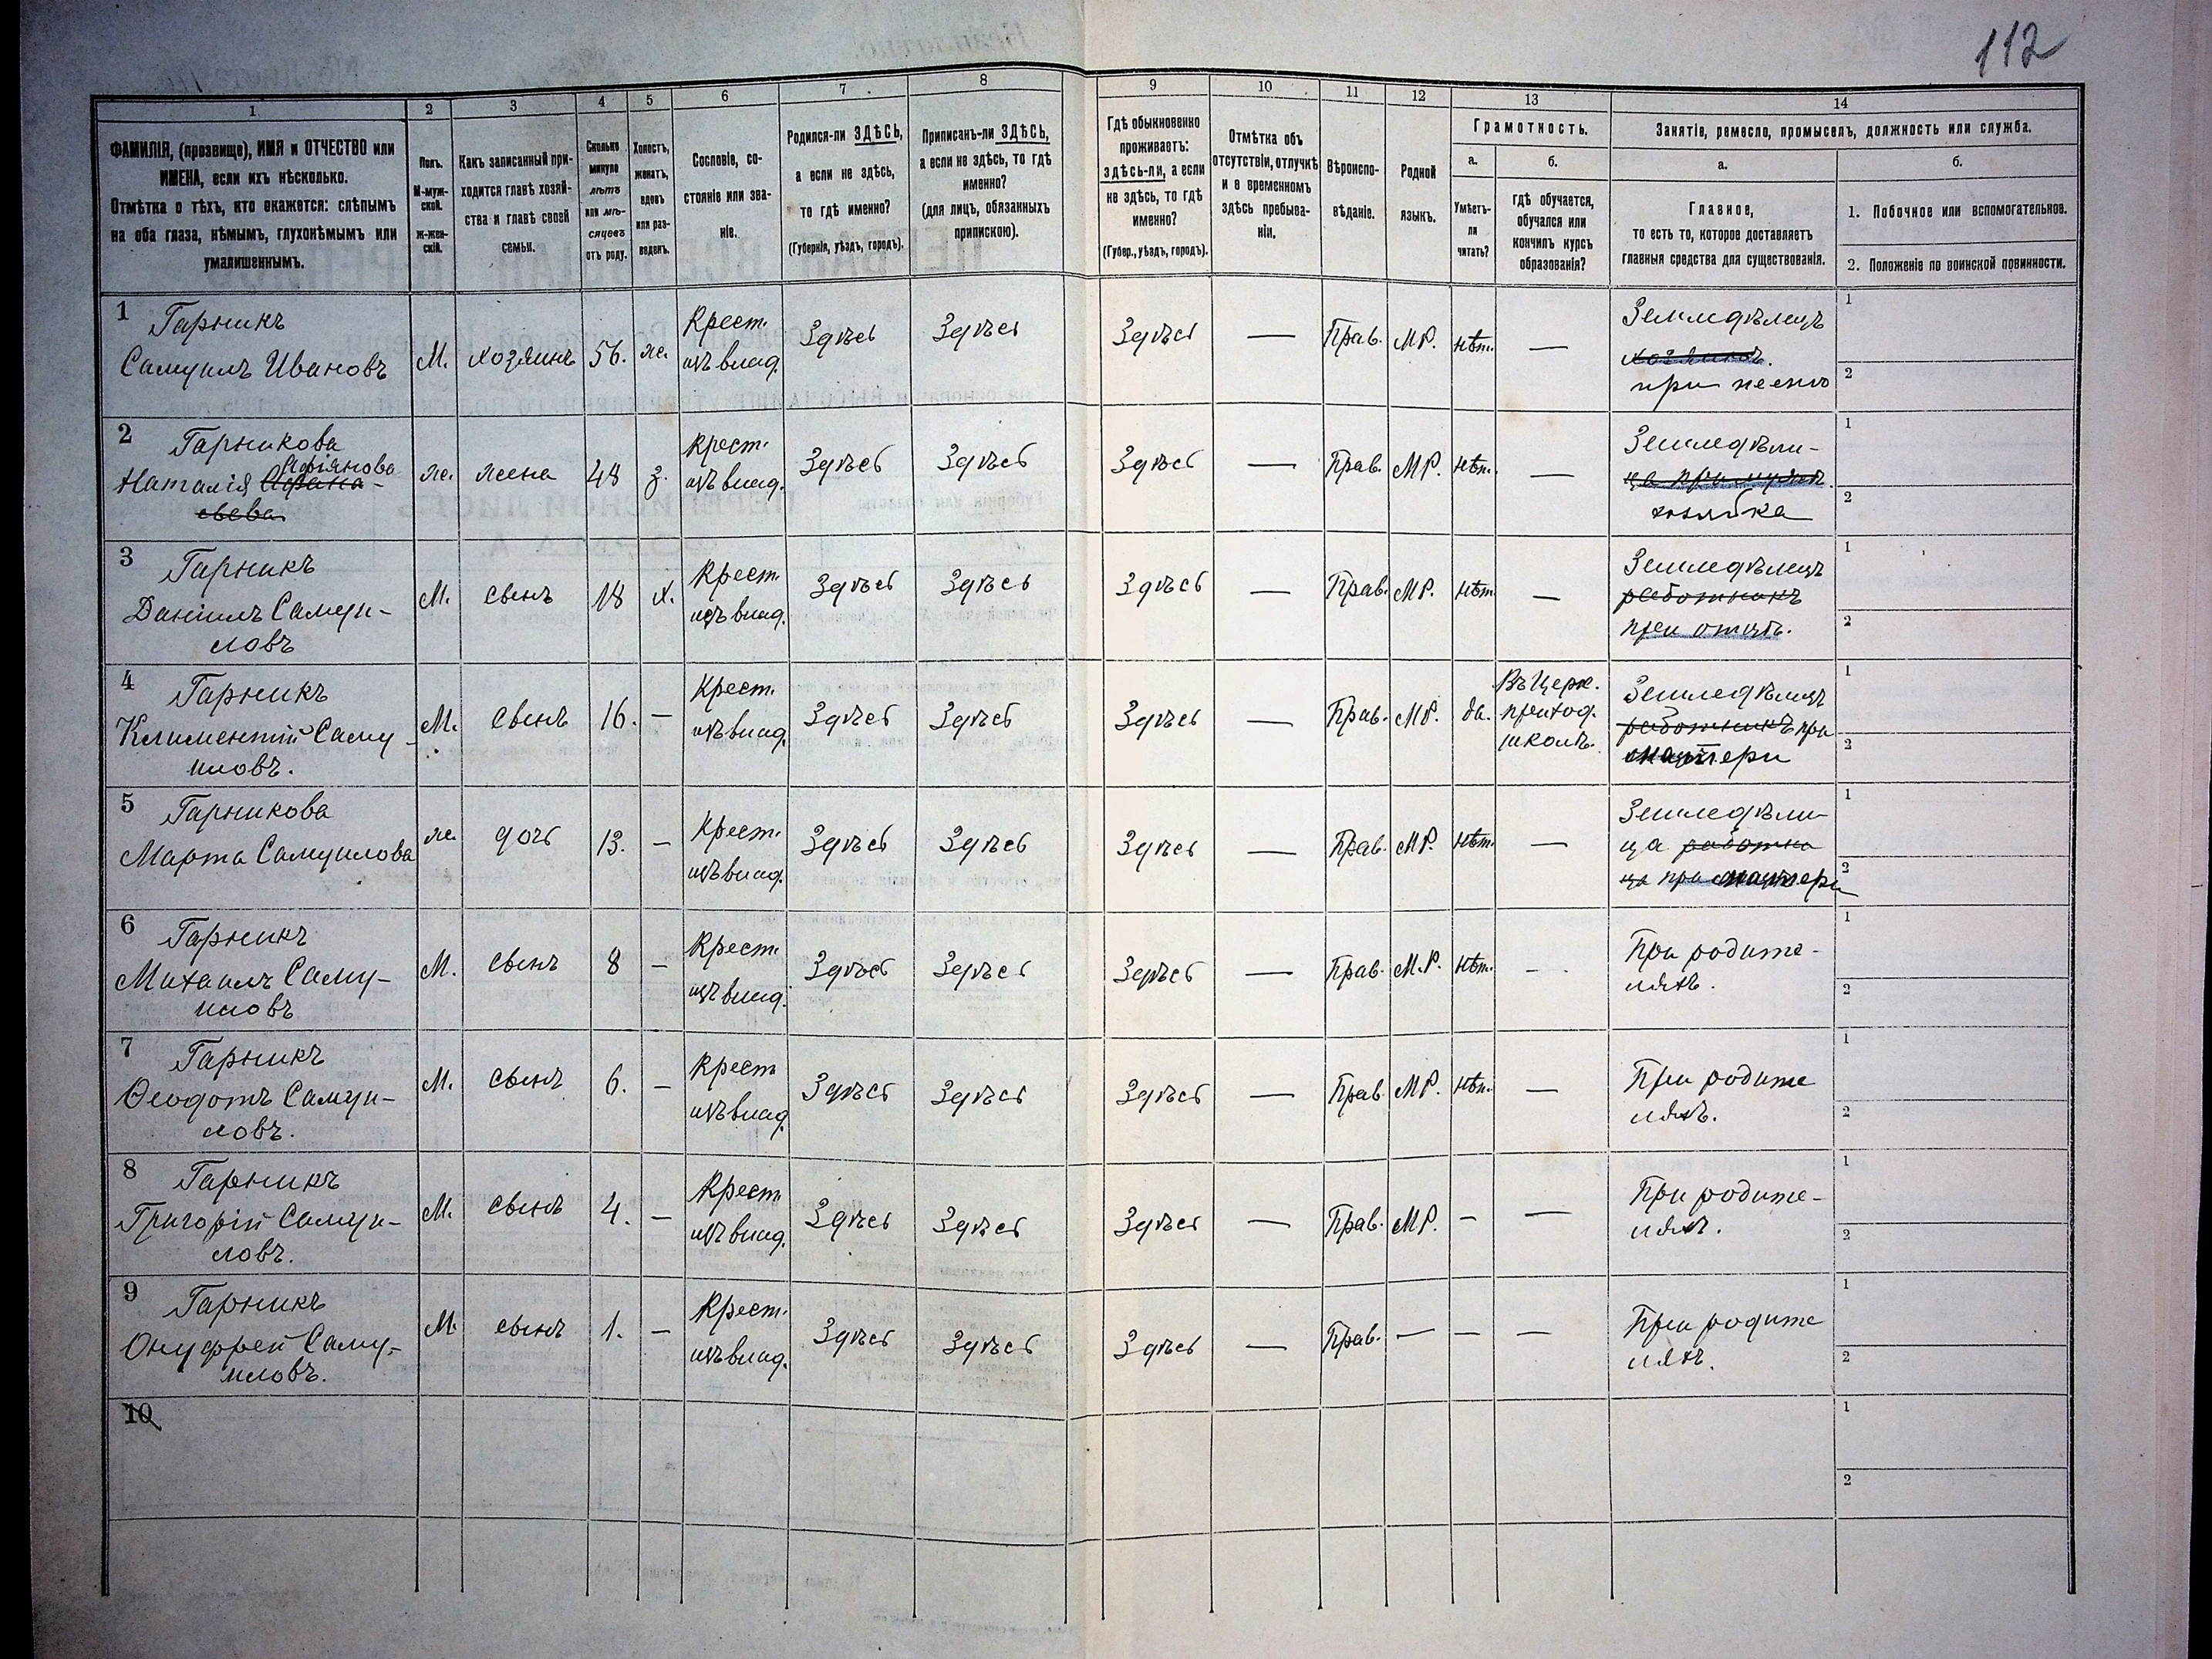 112
1 2 3 4 5 6 7 8 9 10 11 12 13 14
ФАМИЛІЯ, (прозвище), ИМЯ и ОТЧЕСТВО или
ИМЕНА, если ихъ нѣсколько.
Отмѣтка о тѣхъ, кто окажется: слѣпымъ
на оба глаза, нѣмымъ, глухонѣмымъ или
умалишеннымъ.
Полъ.
М-муж-
ской.
ж-жен-
скій.
Какъ записанный при-
ходится главѣ хозяй-
ства и главѣ своей
семьи.
Сколько
минуло
лѣтъ
или мѣ-
сяцевъ
отъ роду.
Холостъ,
женатъ,
вдовъ
или раз-
веденъ.
Сословіе, со-
стояніе или зва-
ніе.
Родился-ли ЗДѢСЬ,
а если не здѣсь,
то гдѣ именно?
(Губернія, уѣздъ, городъ).
Приписанъ-ли ЗДѢСЬ,
а если не здѣсь, то гдѣ
именно?
(для лицъ, обязанныхъ
припискою).
Гдѣ обыкновенно
проживаетъ:
здѣсь-ли, а если
не здѣсь, то гдѣ
именно?
(Губер., уѣздъ, городъ).
Отмѣтка объ
отсутствіи, отлучкѣ
и о временномъ
здѣсь пребыва-
ніи.
Вѣроиспо-
вѣданіе.
Родной
языкъ.
Грамотность.
а.
б.
Умѣетъ-
ли
читать?
гдѣ обучается,
обучался или
кончилъ курсъ
образованія?
Занятіе, ремесло, промыселъ, должность или служба.
а.
б.
Главное,
то есть то, которое доставляетъ
главныя средства для существованія.
1. Побочное или вспомогательное.
2. Положеніе по воинской повинности.
1
Гарникъ
Самуилъ Ивановъ
М.
хозяинъ
56.
же.
Крест.
изъ влад.
Здѣсь
Здѣсь
Здѣсь
—
Прав.
МР.
нѣт.
—
Земледѣлецъ
хозяинъ.
1
2
2
Гарникова
Афіянова
Наталія Афана-
сьева
же.
жена
48
з.
Крест.
изъ влад.
Здѣсь
Здѣсь
Здѣсь
—
Прав.
МР.
нѣт.
—
Земледѣли-
ца при мужѣ
хозяйка
1
2
3
Гарникъ
Даніилъ Самуи-
ловъ
М.
сынъ
18
х.
Крест.
изъ влад.
Здѣсь
Здѣсь
Здѣсь
—
Прав.
МР.
нѣт.
—
Земледѣлецъ
работникъ
при отцѣ.
1
2
4
Гарникъ
Климентій Саму-
иловъ.
М.
сынъ
16.
—
Крест.
изъ влад.
Здѣсь
Здѣсь
Здѣсь
—
Прав.
МР.
да.
Въ церк.
приход.
школѣ.
Земледѣлецъ
работникъ при
матери
1
2
5
Гарникова
Марта Самуилова
же.
дочь
13.
—
Крест.
изъ влад.
Здѣсь
Здѣсь
Здѣсь
—
Прав.
МР.
нѣт.
—
Земледѣли-
ца работни
ца при матери
1
2
6
Гарникъ
Михаилъ Саму-
иловъ
М.
сынъ
8
—
Крест.
изъ влад.
Здѣсь
Здѣсь
Здѣсь
—
Прав.
М.Р.
нѣт.
—
При родите-
ляхъ.
1
2
7
Гарникъ
Ѳеодотъ Самуи-
ловъ.
М.
сынъ
6.
—
Крест
изъ влад.
Здѣсь
Здѣсь
Здѣсь
—
Прав
МР.
нѣт.
—
При родите
ляхъ.
1
2
8
Гарникъ
Григорій Самуи-
ловъ.
М.
сынъ
4.
—
Крест
изъ влад.
Здѣсь
Здѣсь
Здѣсь
—
Прав.
МР.
—
—
При родите-
ляхъ.
1
2
9
Гарникъ
Онуфрей Саму-
иловъ.
М.
сынъ
1.
—
Крест.
изъ влад.
Здѣсь
Здѣсь
Здѣсь
—
Прав.
—
—
—
При родите
ляхъ.
1
2
10
1
2